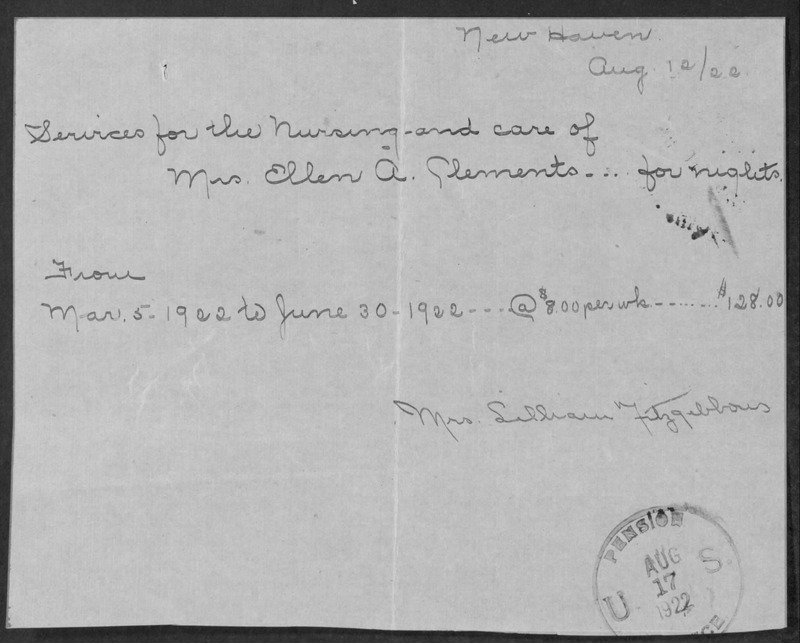 New Haven.
Aug 12/22.
Services for the Nursing and care of
Mrs. Ellen A. Clements - - - for nights.
From
Mar. 5 - 1922 to June 30 - 1922 - - - - @ $8.00 per wk - - - - - - $128.00
Mrs. Lillian Fitzgibbons
PENSION
AUG
17
1922
U S